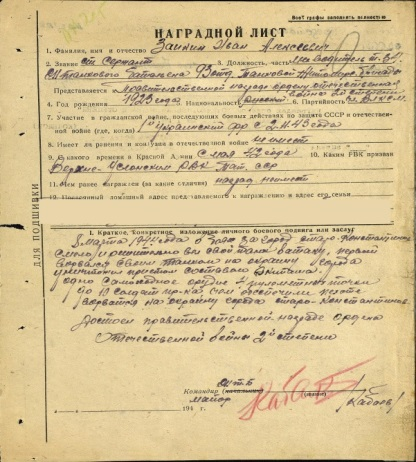 Все графы заполнять полностью
НАГРАДНОЙ ЛИСТ
1. Фамилия, имя и отчество Заикин Иван Алексеевич
2. Звание ст сержант 3. Должность, часть мех-водитель т-34
танкового батальона 93 отд. танковой Житомирской бригады
Представляется к правительственной награде ордену отечественная война 2й степени
4. Год рождения 1923 года 5. Национальность русский 6. Партийность чл. ВЛКСМ
7. Участие в гражданской войне, последующих боевых действиях по защите СССР и отечественной
войне (где, когда) 1й Украинский фр с 2.11.43 года
8. Имеет ли ранения и контузии в отечественной войне не имеет
9. С какого времени в Красной Армии с мая 42 года 10. Каким РВК призван
Верхне-Услонским РВК Тат. сср
11. Чем ранее награжден (за какие отличия) наград неимеет
12. Постоянный домашний адрес представляемого к награждению и адрес его семьи
ДЛЯ ПОДШИВКИ
I. Краткое, конкретное изложение личного боевого подвига или заслуг
марта 1944 года в боях за город старо-Константинов
смело и решительно вел свой танк в атаку, первый
ворвался своим танком на окраину города
уничтожил при этом составом экипажа
одно самоходное орудие 2 пулеметных точки
до 10 солдат пр-ка, чем обеспечили пехоте
на окраину города старо-Константинов.
Достоин правительственной награде ордена
Отечественной войны 2й степени
Командир (начальник)
майор
194 г.